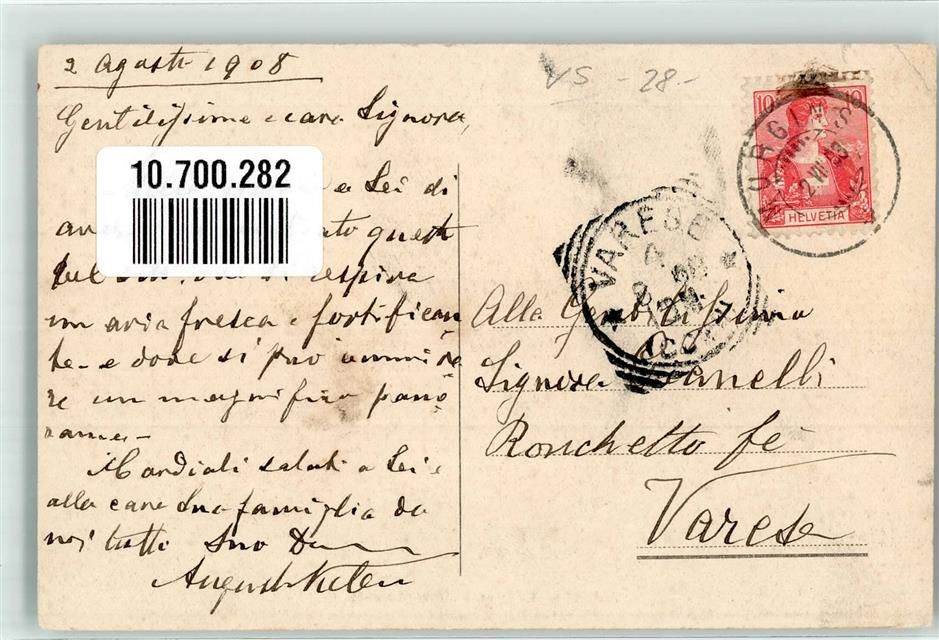 2 Agosto 1908
VS -28.-
Gentilissima e cara Signora,
10.700.282
a Lei di
questo
respira
un aria fresca e fortifican
te e dove si può ammira
re un magnifico pano
rama
Cordiali saluti a Lei e
alla cara Sua famiglia da
noi tutti Suo
August
10 10
HELVETIA
MORGINS
2.VIII.08
VARESE
Alla Gentilissima
Signora
Ronchetto fé
Varese